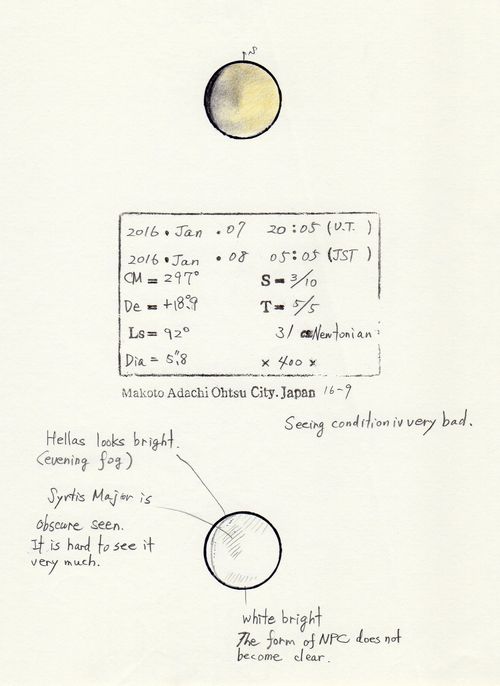 2016 • Jan • 07 20:05 (U.T. )
2016 • Jan • 08 05:05 (JST )
CM = 297° S = 3/10
De = +18.°9 T = 5/5
Ls = 92° 31 cm Newtonian
Dia = 5."8 × 400 ×
Makoto Adachi Ohtsu City. Japan 16-9
Seeing condition is very bad.
Hellas looks bright.
(evening fog)
Syrtis Major is
obscure seen.
It is hard to see it
very much.
white bright
The form of NPC does not
become clear.